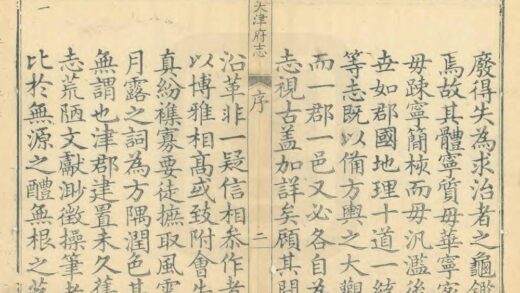 廢得失為求治者之龜鑑
焉故其體寧質毋華寧
毋疎寧簡核而毋汎濫後
丗如郡國地理十道一統
等志既以備方輿之大觀
而一郡一邑又必各自為
志視古盖加詳矣顧其間
天津府志
序
二
沿革非一疑信相叅作者
以博雅相高或致附會
真紛襍寡要徒摭取風雲
月露之詞為方隅潤色其
無謂也津郡建置未久舊
志荒陋文獻渺徵操筆者
比於無源之醴無根之
一